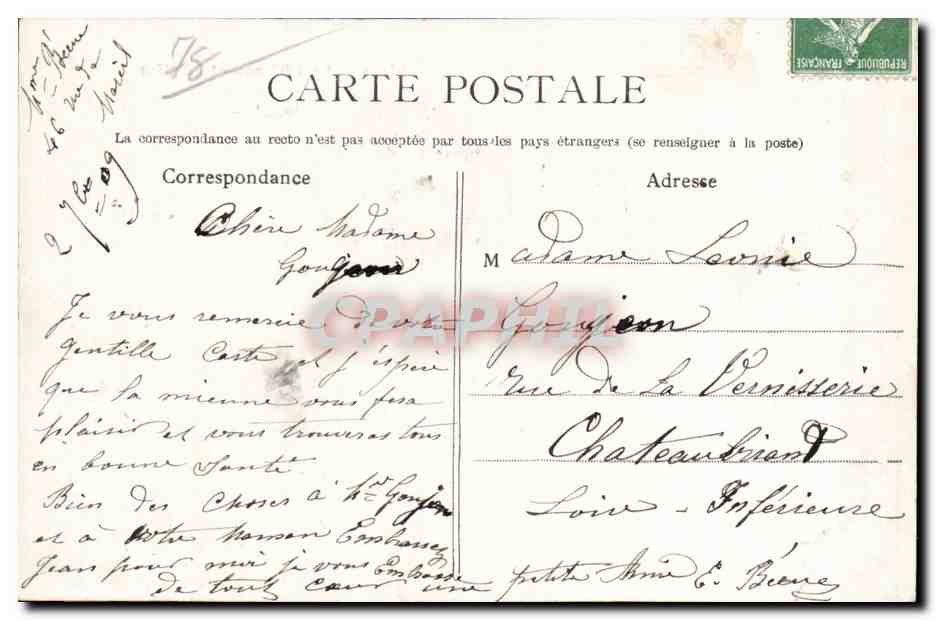 46 rue de
2 7bre 09
78
REPUBLIQUE FRANÇAISE
CARTE POSTALE
La correspondance au recto n'est pas acceptée par tous les pays étrangers (se renseigner à la poste)
Correspondance
Chère Madame
Goujeon
Je vous remercie de votre
gentille Carte et j'éspère
que la mienne vous fera
plaisir et vous trouveras tous
en bonne Santé
Bien des choses à Mr Goujeon
et à votre Maman Embrassez
Jean pour moi je vous Embrasse
de tout cœur une petite Amie E. Béene
Adresse
Madame Leonie
Goujeon
rue de La Vernisserie
Chateaubriant
Loire - Inférieure
CPAPHIL